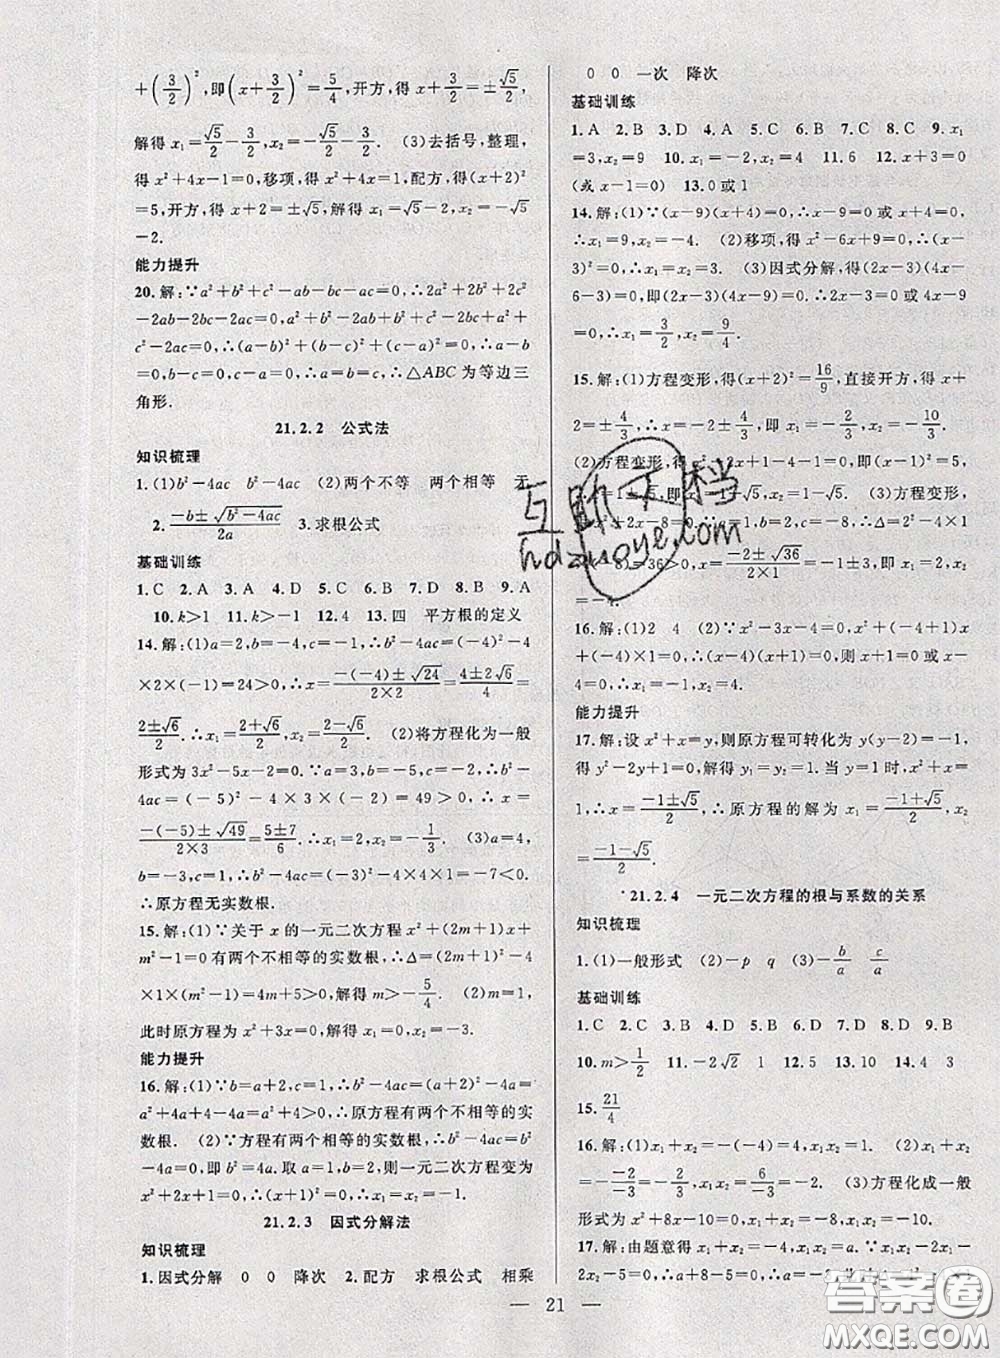 +(3/2)²,即(x+3/2)²=5/4,开方,得 x+3/2=±√5/2,
解得 x₁=√5/2-3/2,x₂=-√5/2-3/2. (3)去括号,整理,
得 x²+4x-1=0,移项,得 x²+4x=1,配方,得(x+2)²
=5,开方,得 x+2=±√5,解得 x₁=√5-2,x₂=-√5
-2.
能力提升
20.解:∵a²+b²+c²-ab-bc-ac=0,∴2a²+2b²+2c²
-2ab-2bc-2ac=0,a²+b²-2ab+b²+c²-2bc+a²+
c²-2ac=0,∴(a-b)²+(b-c)²+(c-a)²=0,∴a-b
=0,b-c=0,c-a=0,∴a=b=c,∴△ABC 为等边三
角形.
21.2.2 公式法
知识梳理
1.(1)b²-4ac b²-4ac (2)两个不等 两个相等 无
2.(-b±√(b²-4ac))/2a 3.求根公式
基础训练
1.C 2.A 3.A 4.D 5.D 6.D 7.B 8.B 9.A
10.k>1 11.k>-1 12.4 13.四 平方根的定义
14.解:(1)a=2,b=-4,c=-1,∴b²-4ac=(-4)²-4
×2×(-1)=24>0,∴x=(-(-4)±√24)/(2×2)=(4±2√6)/4=
(2±√6)/2.∴x₁=(2+√6)/2,x₂=(2-√6)/2. (2)将方程化为一般
形式为 3x²-5x-2=0.∵a=3,b=-5,c=-2,∴b²-
4ac=(-5)²-4×3×(-2)=49>0,∴x=
(-(-5)±√49)/(2×3)=(5±7)/6.∴x₁=2,x₂=-1/3. (3)a=4,
b=-3,c=1,∴b²-4ac=(-3)²-4×4×1=-7<0.
∴原方程无实数根.
15.解:(1)∵关于 x 的一元二次方程 x²+(2m+1)x+
m²-1=0 有两个不相等的实数根,∴Δ=(2m+1)²-4
×1×(m²-1)=4m+5>0,解得 m>-5/4. (2)m=1,
此时原方程为 x²+3x=0,解得 x₁=0,x₂=-3.
能力提升
16.解:(1)∵b=a+2,a≠0,∴b²-4ac=(a+2)²-4a=
a²+4a+4-4a=a²+4>0,∴原方程有两个不相等的实
数根. (2)∵方程有两个相等的实数根,∴b²-4ac=b²-
4a=0,即 b²=4a.取 a=1,b=2,则一元二次方程变为
x²+2x+1=0,∴(x+1)²=0,∴x₁=x₂=-1.
21.2.3 因式分解法
知识梳理
1.因式分解 0 0 降次 2.配方 求根公式 相乘
0 0 一次 降次
基础训练
1.A 2.B 3.D 4.A 5.C 6.B 7.C 8.C 9.x₁
=3,x₂=9 10.x₁=-2,x₂=4 11.6 12.x+3=0
(或 x-1=0) 13.0或1
14.解:(1)∵(x-9)(x+4)=0,∴x-9=0 或 x+4=0,
∴x₁=9,x₂=-4. (2)移项,得 x²-6x+9=0,∴(x-
3)²=0,∴x₁=x₂=3. (3)因式分解,得(2x-3)(4x-
6-3)=0,即(2x-3)(4x-9)=0,∴2x-3=0 或 4x-9
=0,∴x₁=3/2,x₂=9/4.
15.解:(1)方程变形,得(x+2)²=16/9,直接开方,得 x+
2=±4/3,∴x=-2±4/3,即 x₁=-2/3,x₂=-10/3.
(2)方程变形,得 x²-2x+1-4-1=0,即(x-1)²=5,
x-1=±√5,∴x₁=1+√5,x₂=1-√5. (3)方程变形,
x²+2x-8=0,∵a=1,b=2,c=-8,∴Δ=2²-4×1
×(-8)=36>0,x=(-2±√36)/(2×1)=-1±3,即 x₁=2,x₂
=-4.
16.解:(1)2 4 (2)∵x²-3x-4=0,x²+(-4+1)x
+(-4)×1=0,∴(x-4)(x+1)=0,则 x+1=0 或 x-
4=0,∴x₁=-1,x₂=4.
能力提升
17.解:设 x²+x=y,则原方程可转化为 y(y-2)=-1,
得 y²-2y+1=0,解得 y₁=y₂=1.当 y=1 时,x²+x=
1,∴x=(-1±√5)/2,∴原方程的解为 x₁=(-1+√5)/2,x₂
=(-1-√5)/2.
21.2.4 一元二次方程的根与系数的关系
知识梳理
1.(1)一般形式 (2)-p q (3)-b/a c/a
基础训练
1.C 2.C 3.B 4.D 5.D 6.B 7.D 8.D 9.B
10.m>1/2 11.-2√2 1 12.5 13.10 14.4 3
15.21/4
16.解:(1)x₁+x₂=-(-4)=4,x₁x₂=1. (2)x₁+x₂
=-(-2)/(-3)=-2/3,x₁x₂=6/(-3)=-2. (3)方程化成一般
形式为 x²+8x-10=0,∴x₁+x₂=-8,x₁x₂=-10.
17.解:由题意得 x₁+x₂=2,x₁²-2x₁-5=0,x₂²-
2x₂-5=0,∴
21
互助文档
hdzuoye.com
答案圈
MXQE.COM